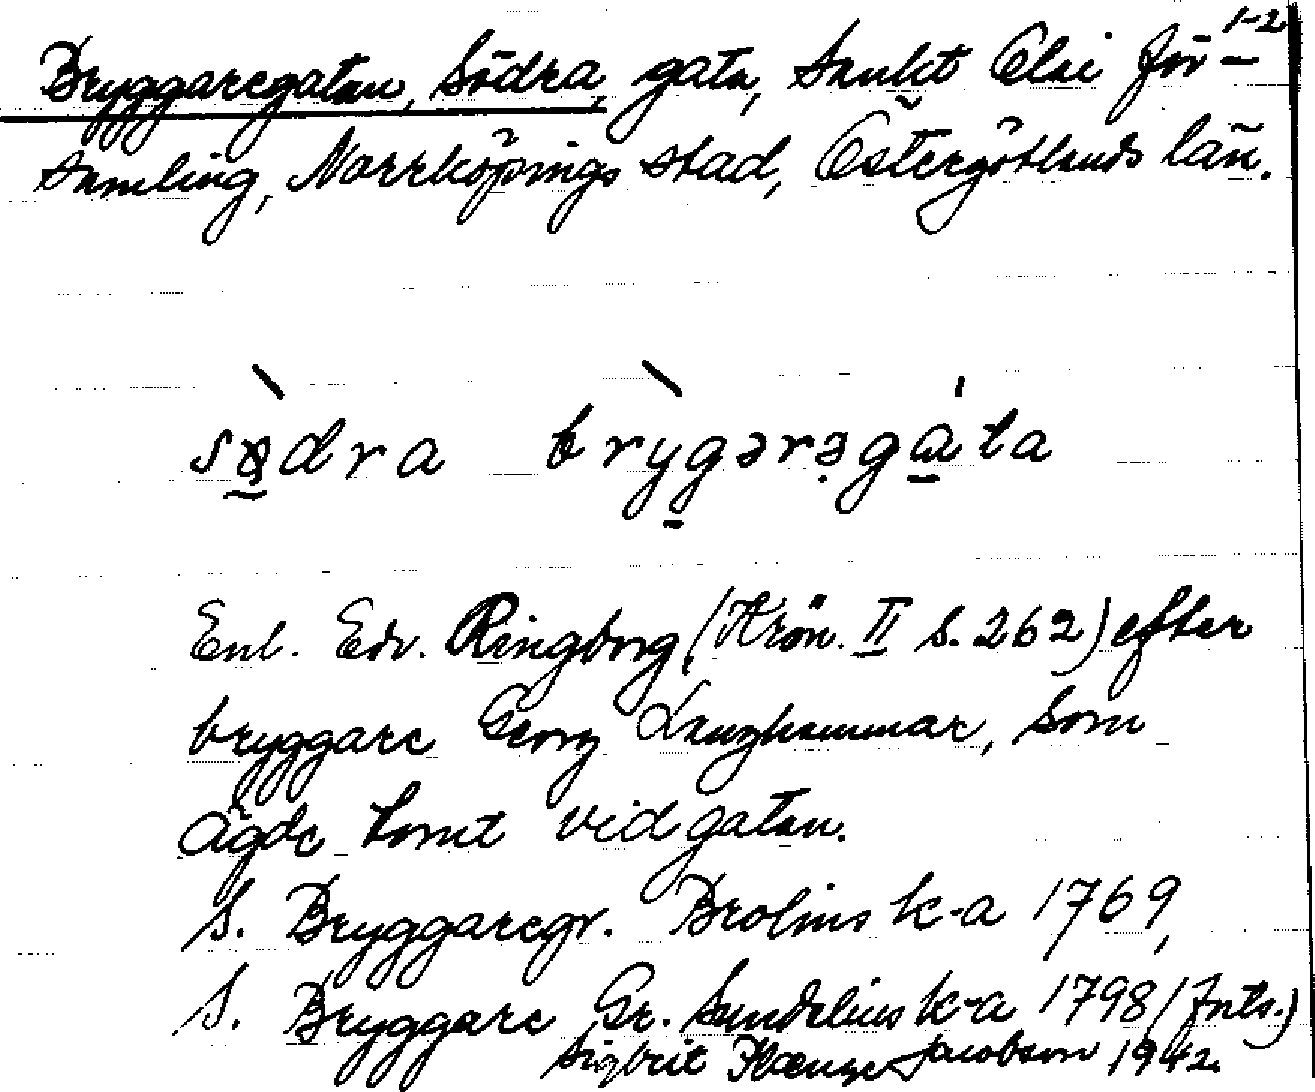 1-2
Bryggaregatan, Södra, gata, Sankt Olai för-
samling, Norrköpings stad, Östergötlands län.
sø̀dra brygərəgáta
Enl. Edv. Ringborg (Krön. II s. 262) efter
bryggare Georg Langhammar, som
ägde tomt vid gatan.
S. Bryggaregr. Brolins k-a 1769,
S. Bryggare Gr. Sundelius k-a 1798 (Jnts.)
Sigbrit Jacobson 1942.